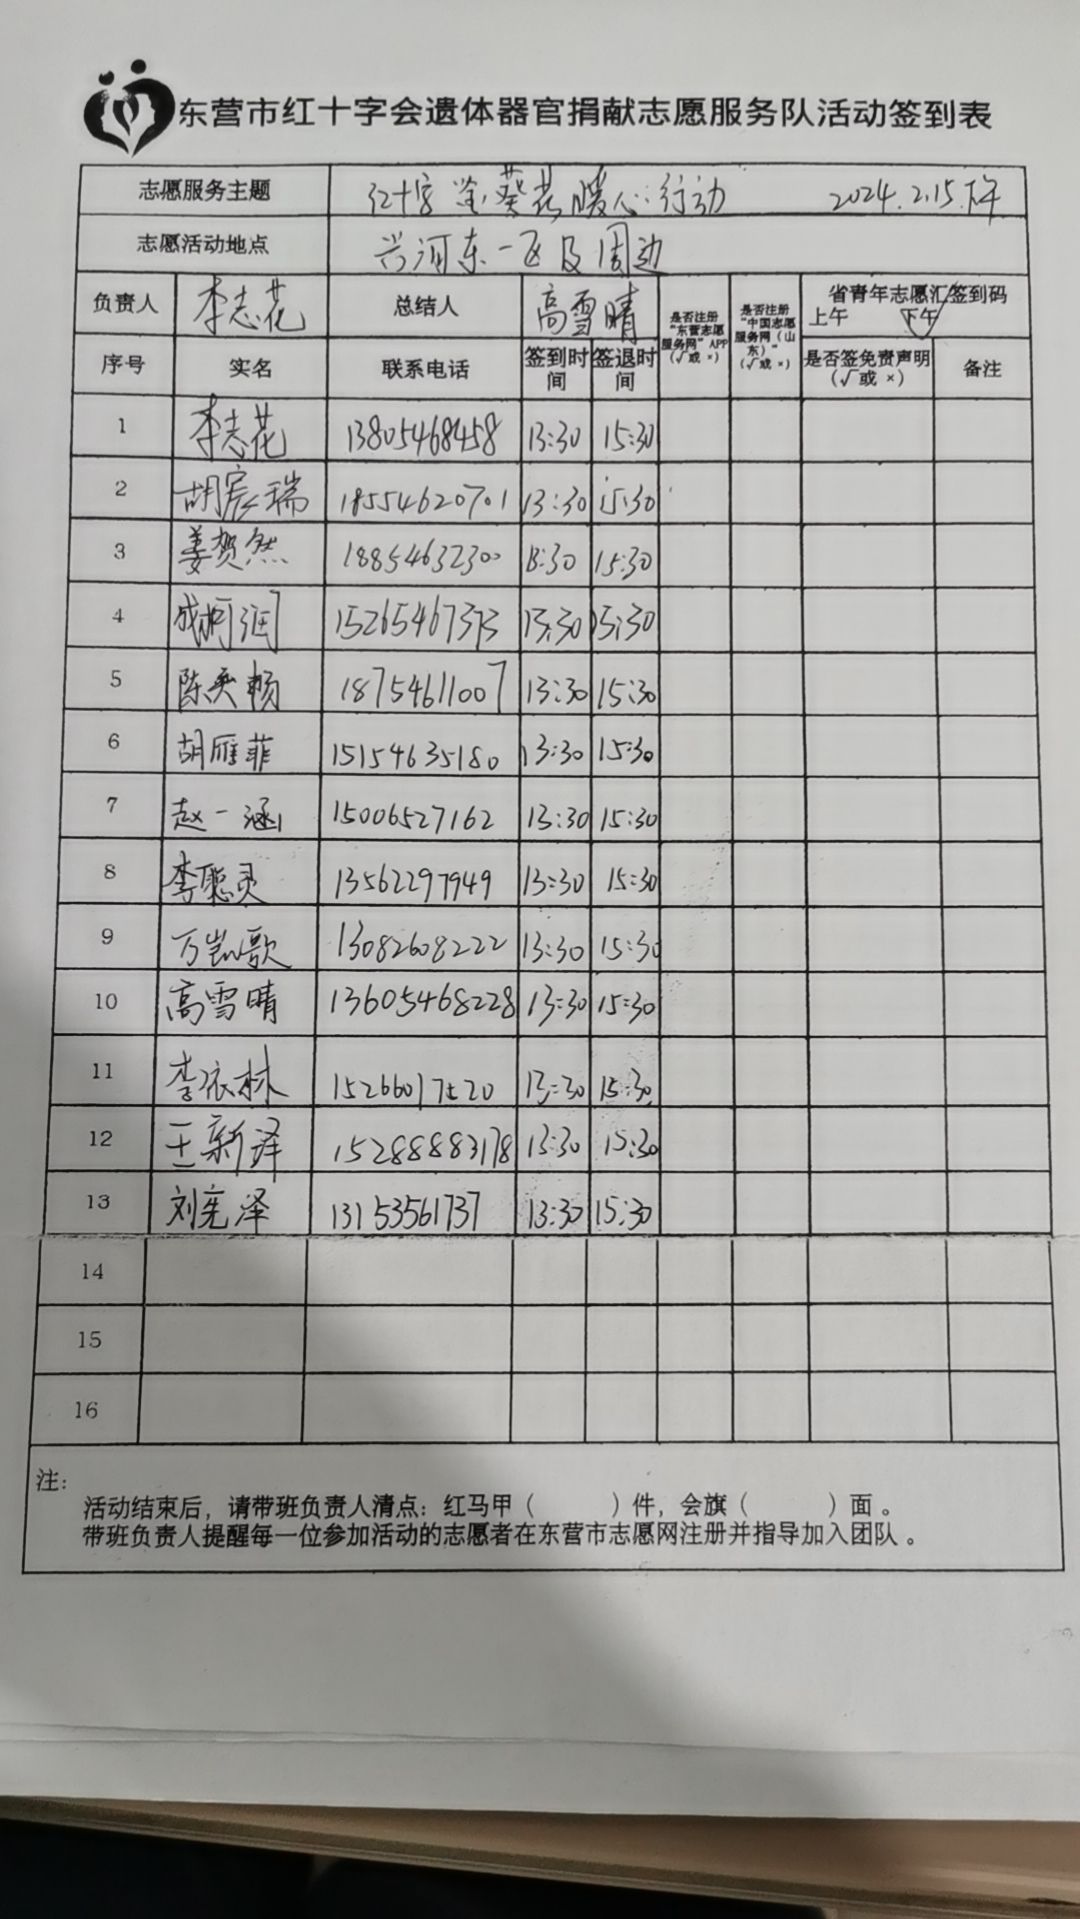 东营市红十字会遗体器官捐献志愿服务队活动签到表
志愿服务主题 红十字 葵花暖心行动 2024.2.15.下午
志愿活动地点 兴河东一区及周边
负责人 李志花 总结人 高雪晴 是否注册“东营志愿服务网”APP(√或 ×) 是否注册“中国志愿服务网（山东）”(√或 ×) 省青年志愿汇签到码 上午 下午
序号 实名 联系电话 签到时间 签退时间 是否签免责声明(√或 ×) 备注
1 李志花 13805468458 13:30 15:30
2 胡宸瑞 18554620701 13:30 15:30
3 姜贺然 18854632300 13:30 15:30
4 成柯润 15265467373 13:30 15:30
5 陈奕畅 18754611007 13:30 15:30
6 胡雁菲 15154635180 13:30 15:30
7 赵一涵 15006527162 13:30 15:30
8 李聪灵 13562297949 13:30 15:30
9 万凯歌 13082608222 13:30 15:30
10 高雪晴 13605468228 13:30 15:30
11 李依林 15266017520 13:30 15:30
12 王新泽 15288883178 13:30 15:30
13 刘宪泽 13153561737 13:30 15:30
14
15
16
注：
活动结束后，请带班负责人清点：红马甲（ ）件，会旗（ ）面。
带班负责人提醒每一位参加活动的志愿者在东营市志愿网注册并指导加入团队。